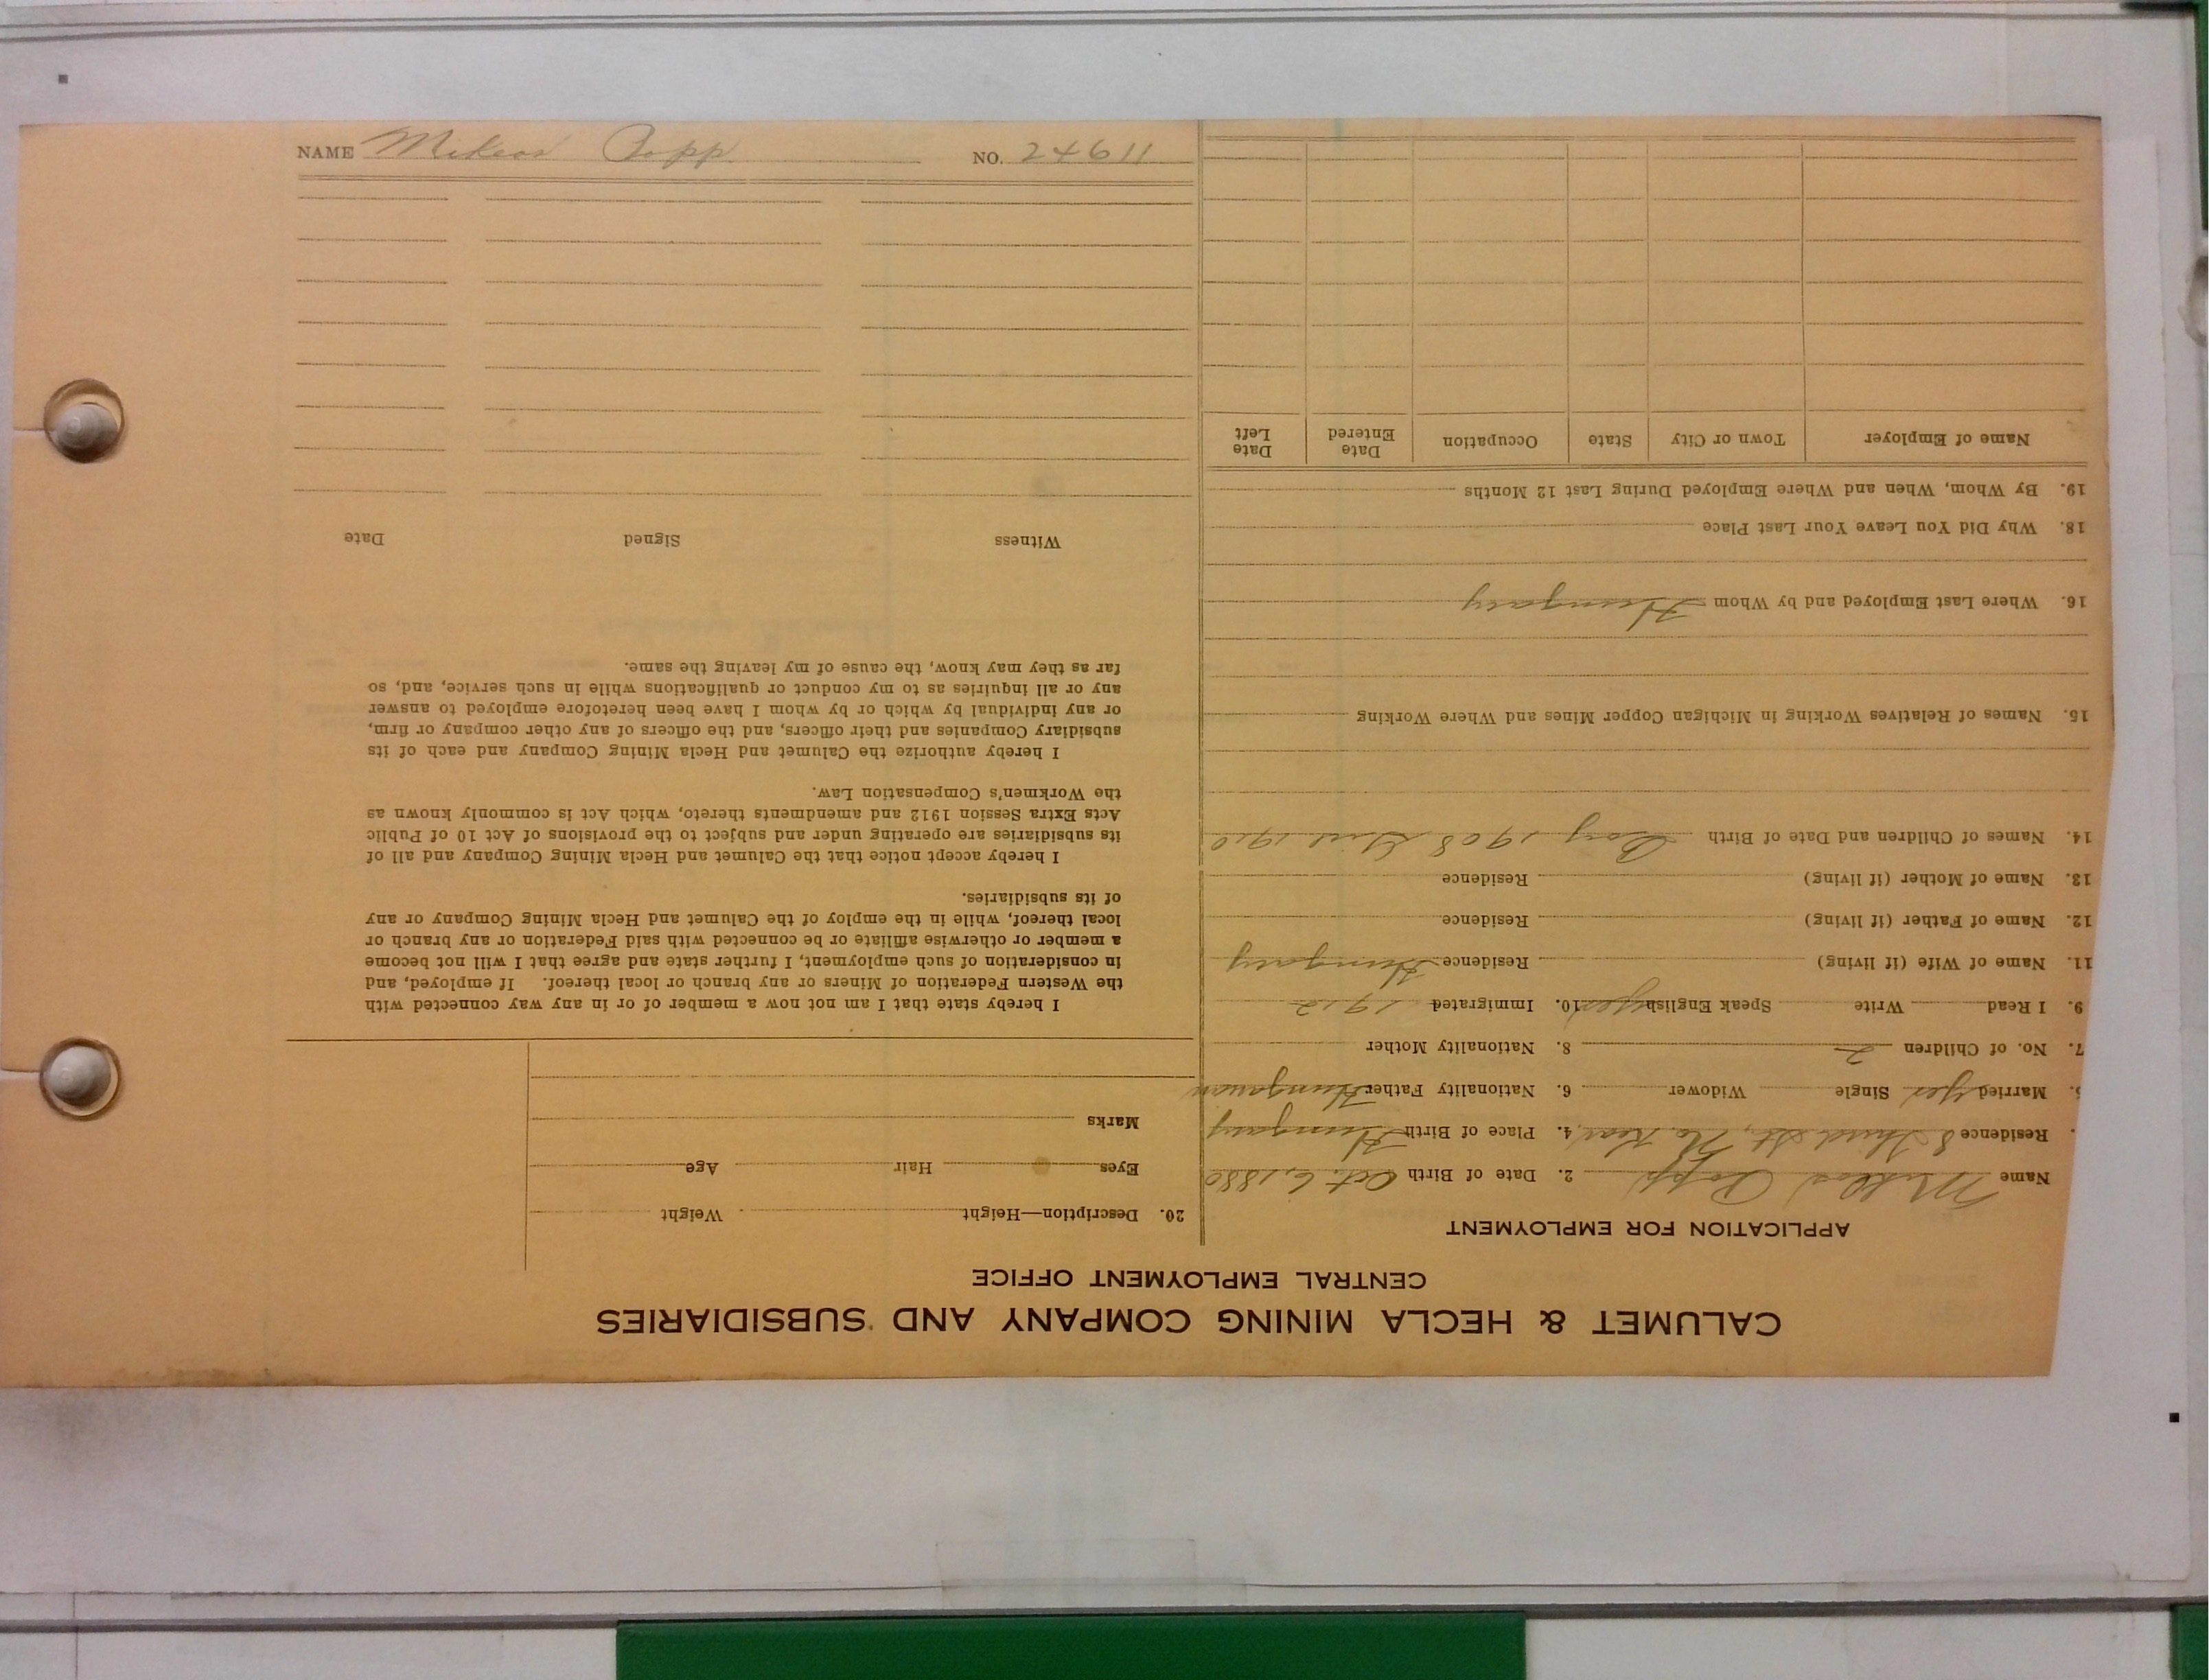 CALUMET & HECLA MINING COMPANY AND SUBSIDIARIES
CENTRAL EMPLOYMENT OFFICE
APPLICATION FOR EMPLOYMENT
Name Miklos Popp 2. Date of Birth Oct. 6, 1880
Residence 8 Third St., No. Rear 4. Place of Birth Hungary
Married Yes Single Widower 6. Nationality Father Hungarian
7. No. of Children 2 8. Nationality Mother
9. I Read Write Speak English yes 10. Immigrated 1912
11. Name of Wife (if living) Residence Hungary
12. Name of Father (if living) Residence
13. Name of Mother (if living) Residence
14. Names of Children and Date of Birth Boy 1908 Girl 1910
15. Names of Relatives Working in Michigan Copper Mines and Where Working
16. Where Last Employed and by Whom Hungary
18. Why Did You Leave Your Last Place
19. By Whom, When and Where Employed During Last 12 Months
Name of Employer Town or City State Occupation Date Entered Date Left
20. Description—Height Weight
Eyes Hair Age
Marks
I hereby state that I am not now a member of or in any way connected with
the Western Federation of Miners or any branch or local thereof. If employed, and
in consideration of such employment, I further state and agree that I will not become
a member or otherwise affiliate or be connected with said Federation or any branch or
local thereof, while in the employ of the Calumet and Hecla Mining Company or any
of its subsidiaries.
I hereby accept notice that the Calumet and Hecla Mining Company and all of
its subsidiaries are operating under and subject to the provisions of Act 10 of Public
Acts Extra Session 1912 and amendments thereto, which Act is commonly known as
the Workmen's Compensation Law.
I hereby authorize the Calumet and Hecla Mining Company and each of its
subsidiary Companies and their officers, and the officers of any other company or firm,
or any individual by which or by whom I have been heretofore employed to answer
any or all inquiries as to my conduct or qualifications while in such service, and, so
far as they may know, the cause of my leaving the same.
Witness Signed Date
NAME Miklos Popp NO. 24611